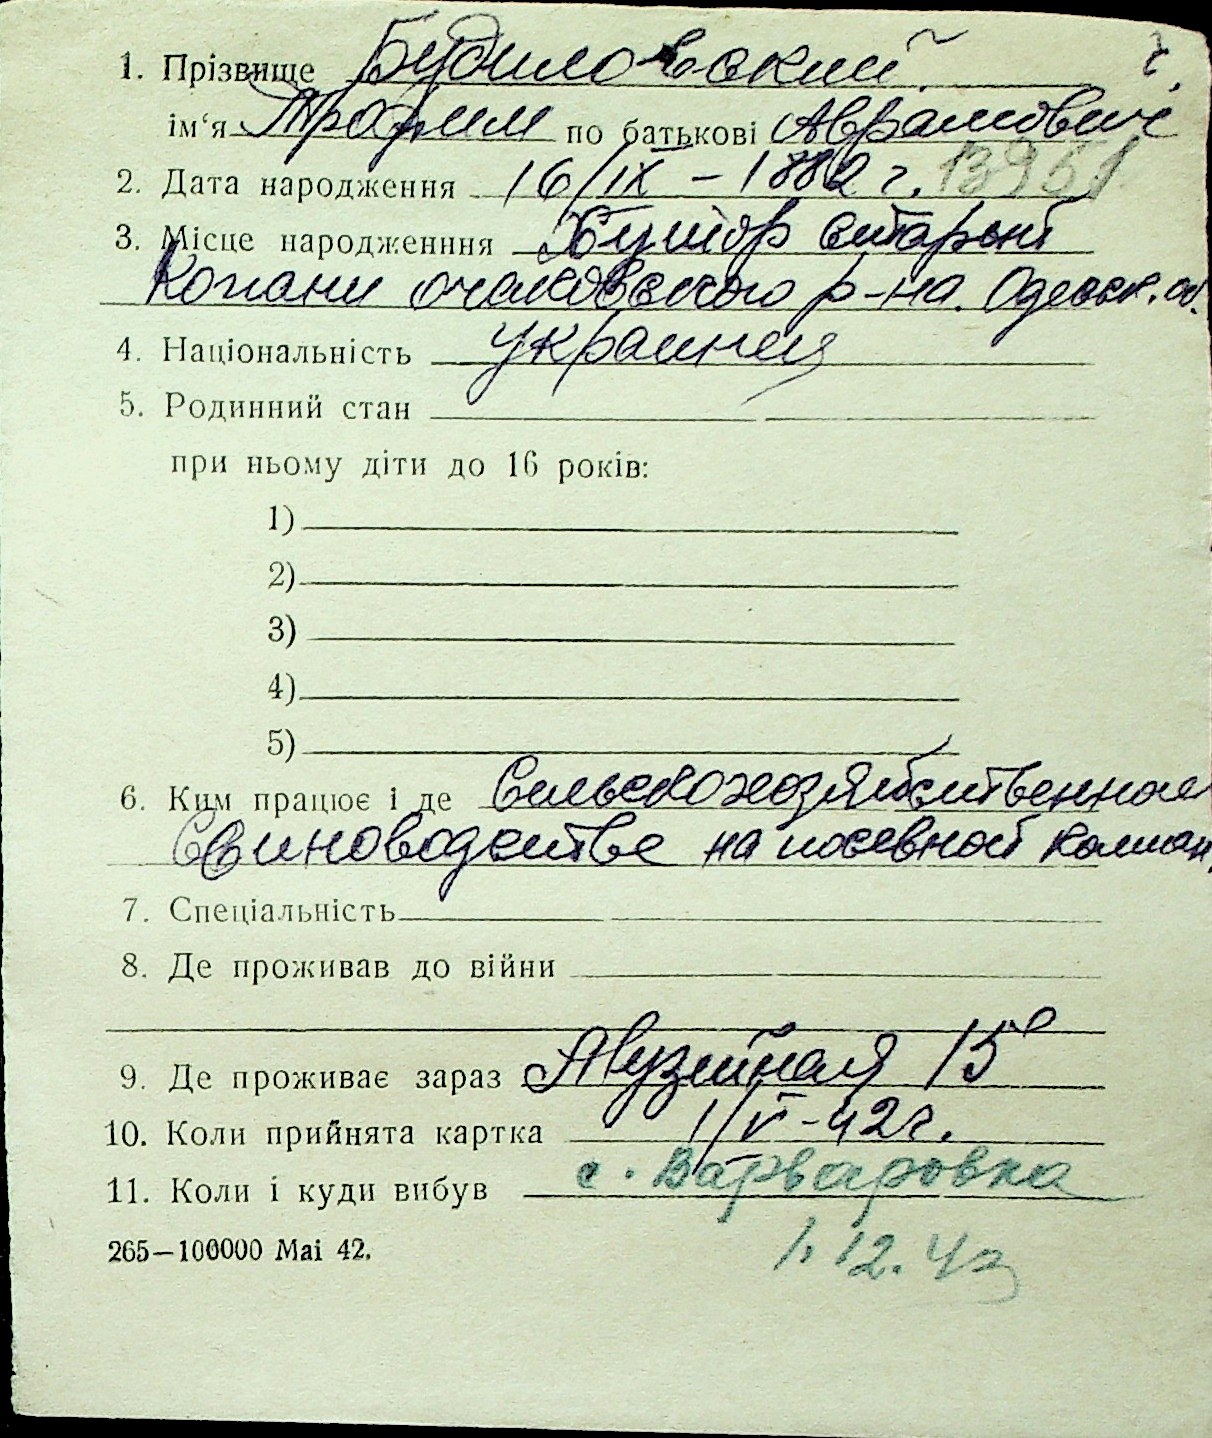 1. Прізвище Будиловский
ім‘я Трофим по батькові Аврамович
2. Дата народження 16/IX – 1882 г. 13951
3. Місце народженння Хутор старый
Копани очаковского р-на. Одесск. об.
4. Національність украинец
5. Родинний стан
при ньому діти до 16 років:
1)
2)
3)
4)
5)
6. Ким працює і де Сельскохозяйственное
Свиноводстве на посевной компан.
7. Спеціальність
8. Де проживав до війни
9. Де проживає зараз Музейная 15
10. Коли прийнята картка 1/V-42г.
11. Коли і куди вибув с. Варваровка
265—100000 Mai 42.
1. 12. 43